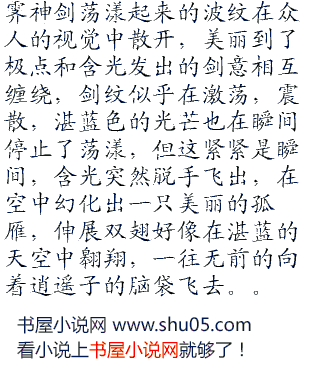 霁神剑荡漾起来的波纹在众
人的视觉中散开，美丽到了
极点和含光发出的剑意相互
缠绕，剑纹似乎在激荡，震
散，湛蓝色的光芒也在瞬间
停止了荡漾，但这紧紧是瞬
间，含光突然脱手飞出，在
空中幻化出一只美丽的孤
雁，伸展双翅好像在湛蓝的
天空中翱翔，一往无前的向
着逍遥子的脑袋飞去。。
书屋小说网 www.shu05.com
看小说上书屋小说网就够了！